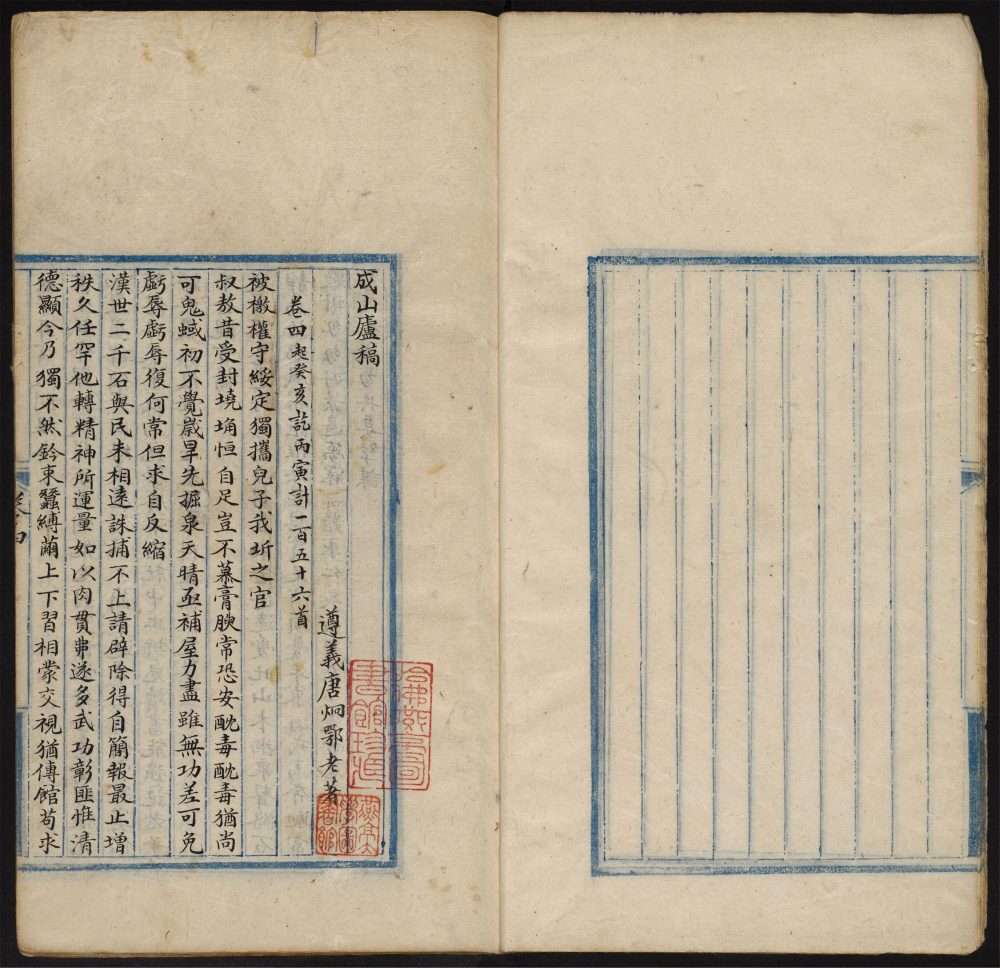 成山廬稿
遵義唐炯鄂老著
卷四起癸亥訖丙寅計一百五十六首
被檄權守綏定獨攜兒子我圻之官
叔敖昔受封墝埆恒自足豈不慕膏腴常恐安酖毒酖毒猶尚
可鬼蜮初不覺歲旱先掘泉天晴亟補屋力盡雖無功差可免
虧辱虧辱復何常但求自反縮
漢世二千石與民未相遠誅捕不上請辟除得自簡報最止增
秩久任罕他轉精神所運量如以肉貫弗遂多武功彰匪惟清
德顯今乃獨不然鈐束蠶縛繭上下習相蒙交視猶傳館苟求
卷四
哈佛燕京圖書館珍藏
燕京大學圖書館